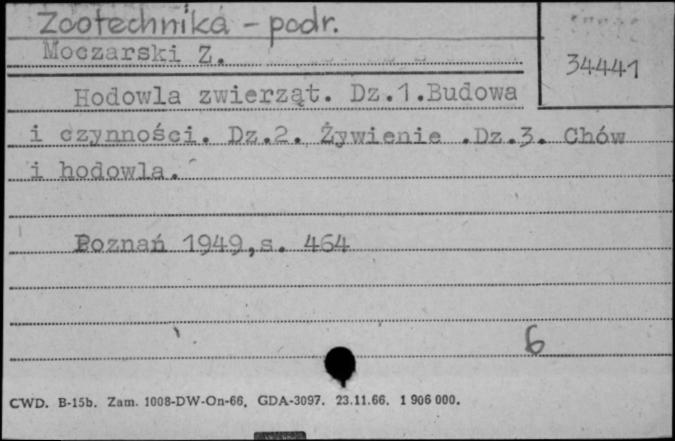 Zootechnika - podr.
Moczarski Z.
34441
Hodowla zwierząt. Dz.1.Budowa
i czynności. Dz.2. Żywienie .Dz.3. Chów
i hodowla.
Poznań 1949,s. 464
6
CWD. B-15b. Zam. 1008-DW-On-66, GDA-3097. 23.11.66. 1 906 000.